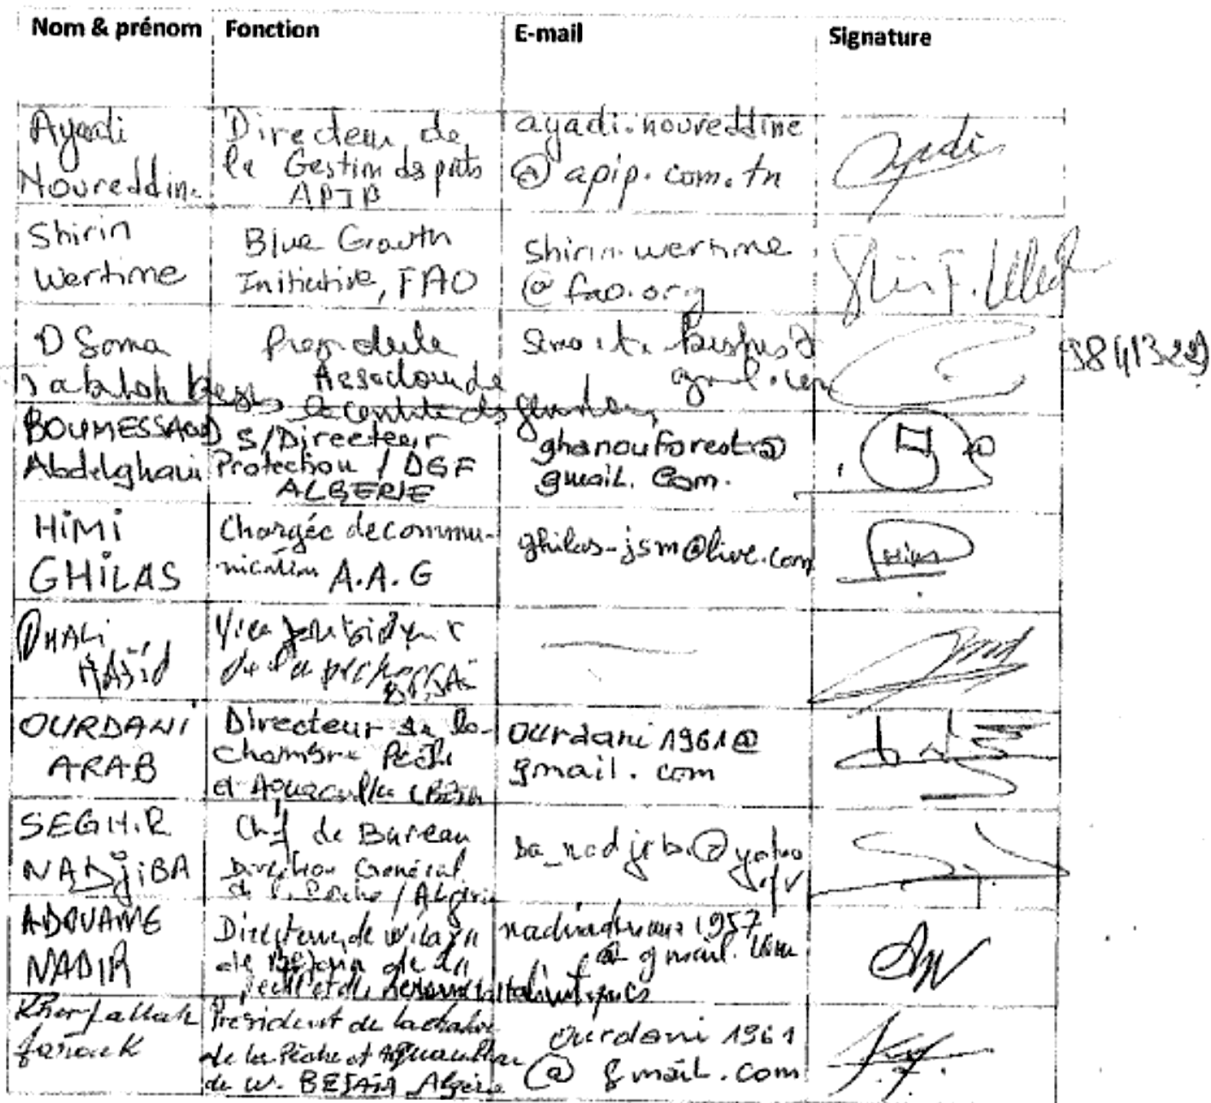 Nom & prénom Fonction E-mail Signature
Ayadi
Noureddine
Directeur de
la Gestion ds ports
APIP
ayadi.noureddine
@ apip.com.tn
ayadi
Shirin
Wertime
Blue Growth
Initiative, FAO
shirin.wertime
@ fao.org
D Soma
Presidente
BOUMESSAOUD
Abdelghani
S/Directeur
Protection / DGF
ALGERIE
ghanouforest@
gmail.com.
HIMI
GHILAS
Chargée de commu-
nication A.A.G
ghilas-jsm@live.com
Himi
Vice president
de la peche
OURDANI
ARAB
Directeur de la
Chambre Pêche
et Aquaculture
ourdani1961@
gmail.com
SEGHIR
NADJIBA
Chef de Bureau
Direction General
de la Peche / Algérie
@yahoo
.fr
ADOUANE
NADIR
Directeur de wilaya
de Bejaia de la
Pêche et des
1957
@ gmail.com
Kherfallah
farouk
President de la chambre
de la Pêche et Aquaculture
de w. BEJAIA Algérie
ourdani 1961
@ gmail.com